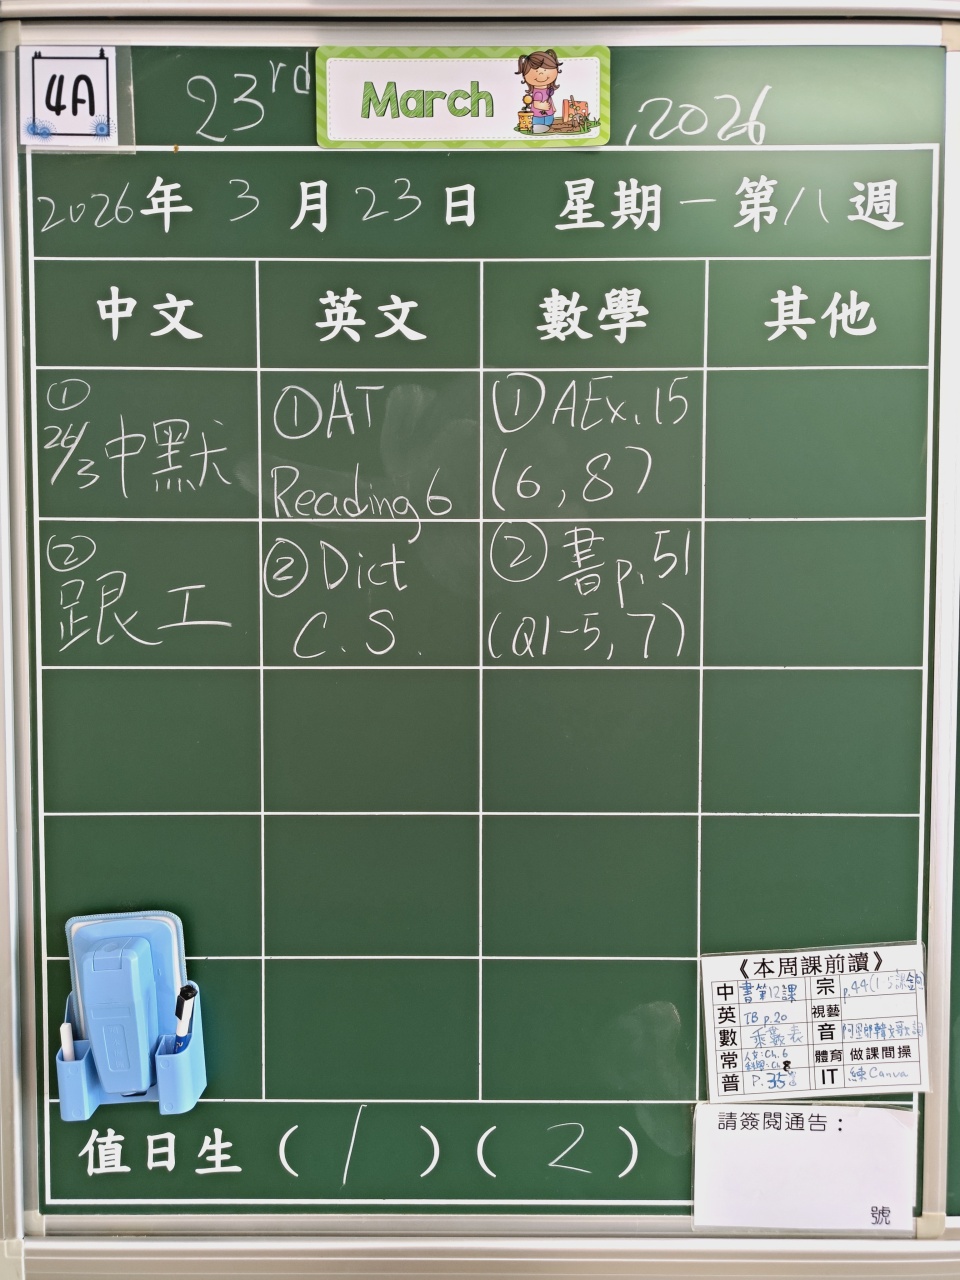 4A
23rd March ,2026
2026年3月23日 星期一第八週
中文 英文 數學 其他
① 24/3 中默
①AT
Reading 6
①AEx.15
(6,8)
② 跟工
②Dict
C.S.
②書p.51
(Q1-5,7)
《本周課前讀》
中 書第12課 宗
英 TB p.20 視藝
數 乘數表 音
常 體育 做課間操
普 P.35 IT 練Canva
請簽閱通告：
號
值日生 (1) (2)